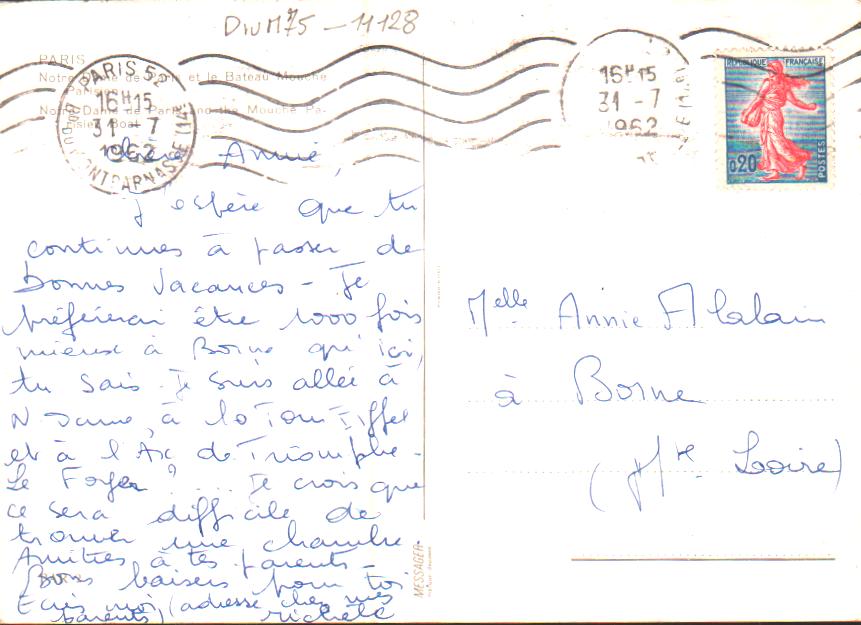 DIVM75 - 11128
PARIS
Notre Dame de Paris et le Bateau Mouche
Parisien
Notre Dame de Paris and the Mouche Pa-
risien Boat
PARIS 52
16H15
31 - 7
1962
MONTPARNASSE (14E)
16H15
31 - 7
1962
REPUBLIQUE FRANÇAISE
0,20
POSTES
Chère Annie,
J'espère que tu
continues à passer de
bonnes vacances - Je
préfèrerai être 1000 fois
mieux à Borne qu'ici,
tu sais. Je suis allée à
N Dame, à la Tour Eiffel
et à l'Arc de Triomphe -
Le Foyer ? ... Je crois que
ce sera difficile de
trouver une chambre.
Amitiés à tes parents -
Bons baisers pour toi
Ecris moi (adresse chez mes
parents) Michèle
MESSAGER
Melle Annie Alalain
à Borne
(Hte Loire)